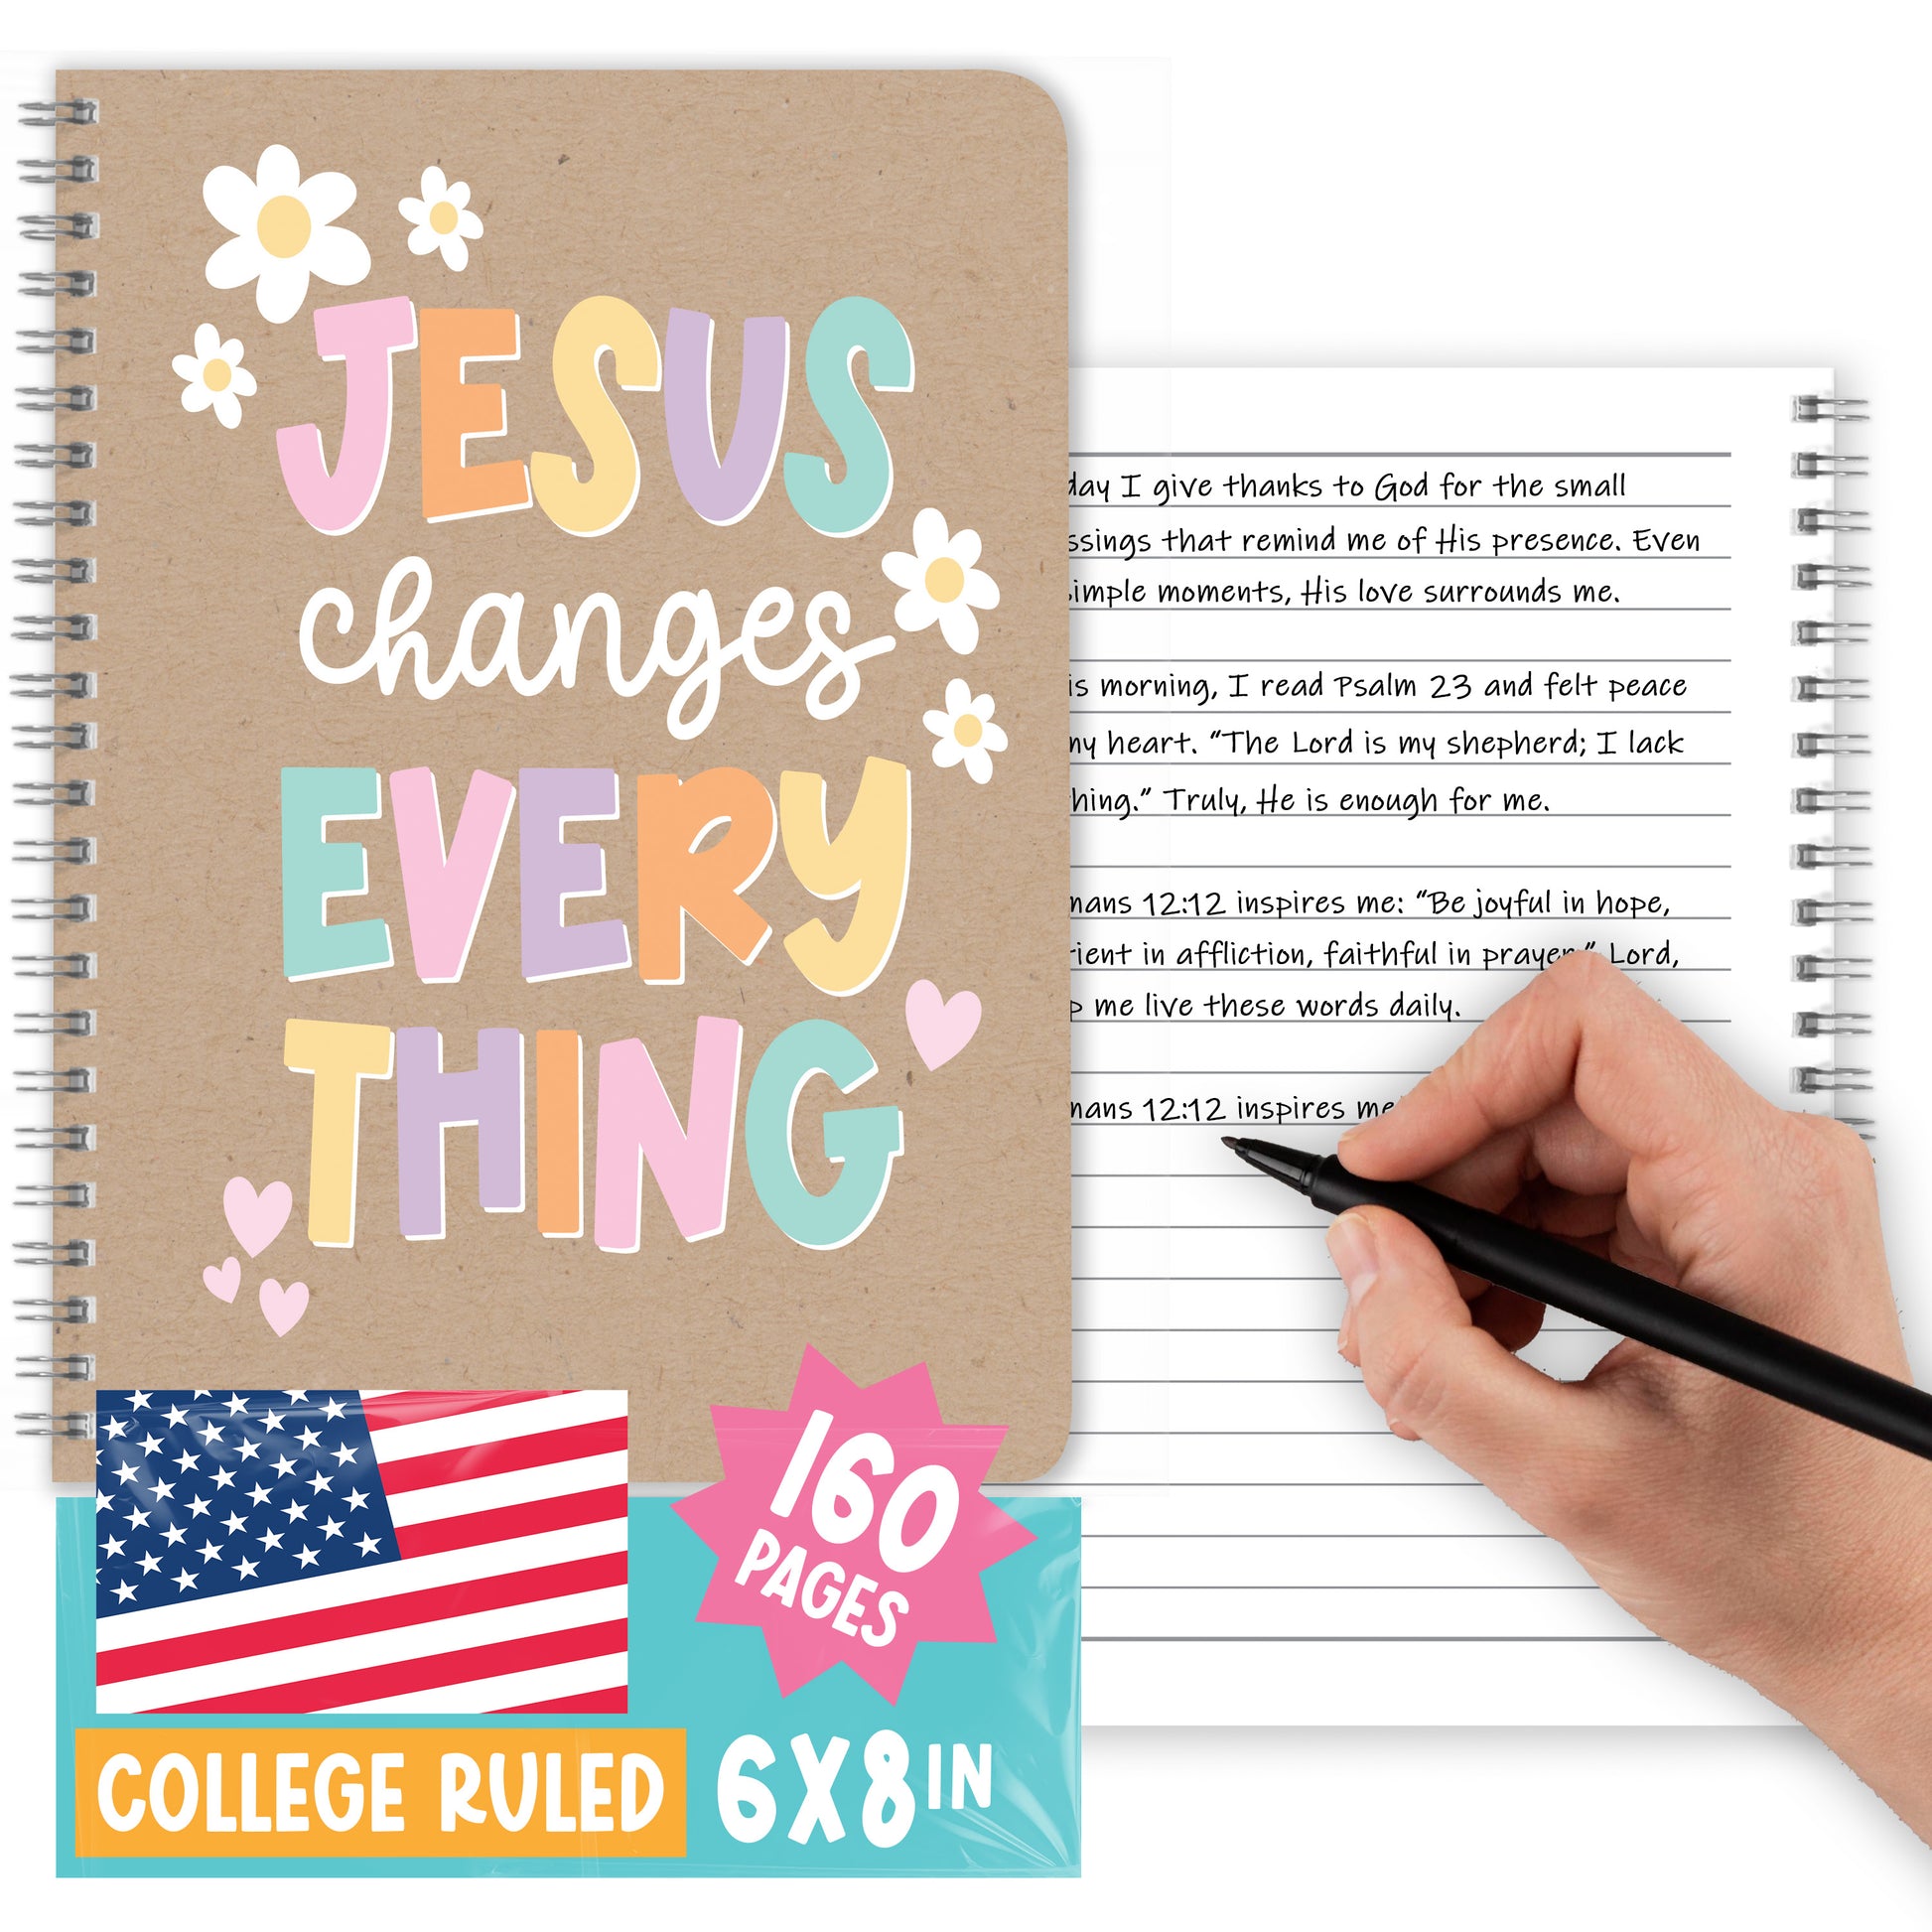 JESUS
changes
EVERY
THING
160
PAGES
COLLEGE RULED
6X8IN
day I give thanks to God for the small
ssings that remind me of His presence. Even
simple moments, His love surrounds me.
is morning, I read Psalm 23 and felt peace
my heart. “The Lord is my shepherd; I lack
hing.” Truly, He is enough for me.
mans 12:12 inspires me: “Be joyful in hope,
tient in affliction, faithful in prayer.” Lord,
p me live these words daily.
mans 12:12 inspires me